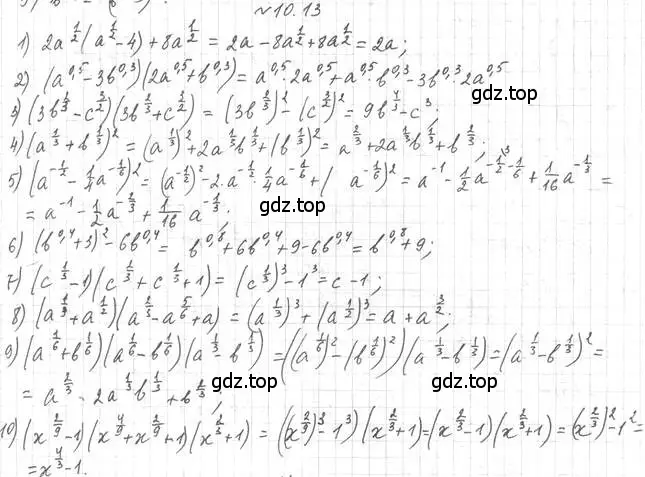 №10.13
1) 2a^{1/2}(a^{1/2}-4)+8a^{1/2} = 2a-8a^{1/2}+8a^{1/2} = 2a;
2) (a^{0,5}-3b^{0,3})(2a^{0,5}+b^{0,3}) = a^{0,5}·2a^{0,5}+a^{0,5}·b^{0,3}-3b^{0,3}·2a^{0,5}
gdz.top gdz.top
3) (3b^{2/3}-c^{3/2})(3b^{2/3}+c^{3/2}) = (3b^{2/3})^2-(c^{3/2})^2 = 9b^{4/3}-c^3;
4) (a^{1/3}+b^{1/3})^2 = (a^{1/3})^2+2a^{1/3}b^{1/3}+(b^{1/3})^2 = a^{2/3}+2a^{1/3}b^{1/3}+b^{2/3};
5) (a^{-1/2}-1/4a^{-1/6})^2 = (a^{-1/2})^2-2·a^{-1/2}·1/4a^{-1/6}+( a^{-1/6})^2 = a^{-1}-1/2a^{-1/2-1/6}+1/16a^{-1/3} =
= a^{-1}-1/2a^{-2/3}+1/16a^{-1/3};
gdz.top
6) (b^{0,4}+3)^2-6b^{0,4} = b^{0,8}+6b^{0,4}+9-6b^{0,4} = b^{0,8}+9;
7) (c^{1/3}-1)(c^{2/3}+c^{1/3}+1) = (c^{1/3})^3-1^3 = c-1;
gdz.top gdz.top
8) (a^{1/3}+a^{1/2})(a^{2/3}-a^{5/6}+a) = (a^{1/3})^3+(a^{1/2})^3 = a+a^{3/2};
9) (a^{1/6}+b^{1/6})(a^{1/6}-b^{1/6})(a^{1/3}-b^{1/3}) = ((a^{1/6})^2-(b^{1/6})^2)(a^{1/3}-b^{1/3}) = (a^{1/3}-b^{1/3})^2 =
= a^{2/3}-2a^{1/3}b^{1/3}+b^{2/3};
gdz.top
10) (x^{2/9}-1)(x^{4/9}+x^{2/9}+1)(x^{2/3}+1) = ((x^{2/9})^3-1^3)(x^{2/3}+1) = (x^{2/3}-1)(x^{2/3}+1) = (x^{2/3})^2-1^2 =
= x^{4/3}-1.
gdz.top gdz.top